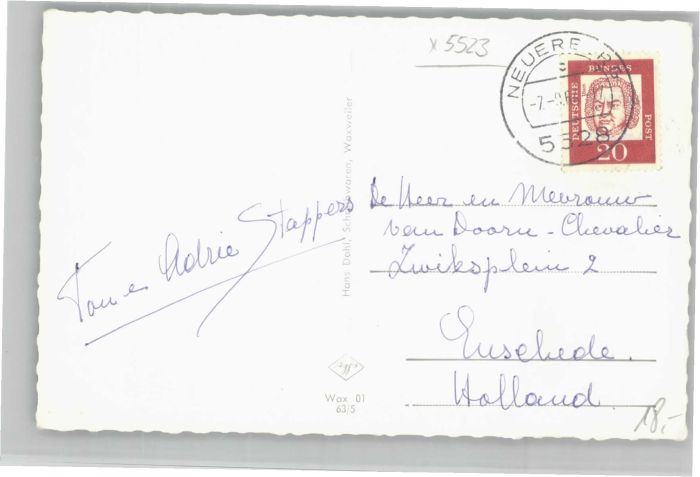 x 5523
NEUERBURG
5528
DEUTSCHE
BUNDES
POST
20
Hans Dahl, Schreibwaren, Waxweiler
Ton en Adrie Stappers
De Heer en Mevrouw
van Doorn-Chevalier
Zwiksplein 2
Enschede.
Holland.
Wax 01
63/5
18,-